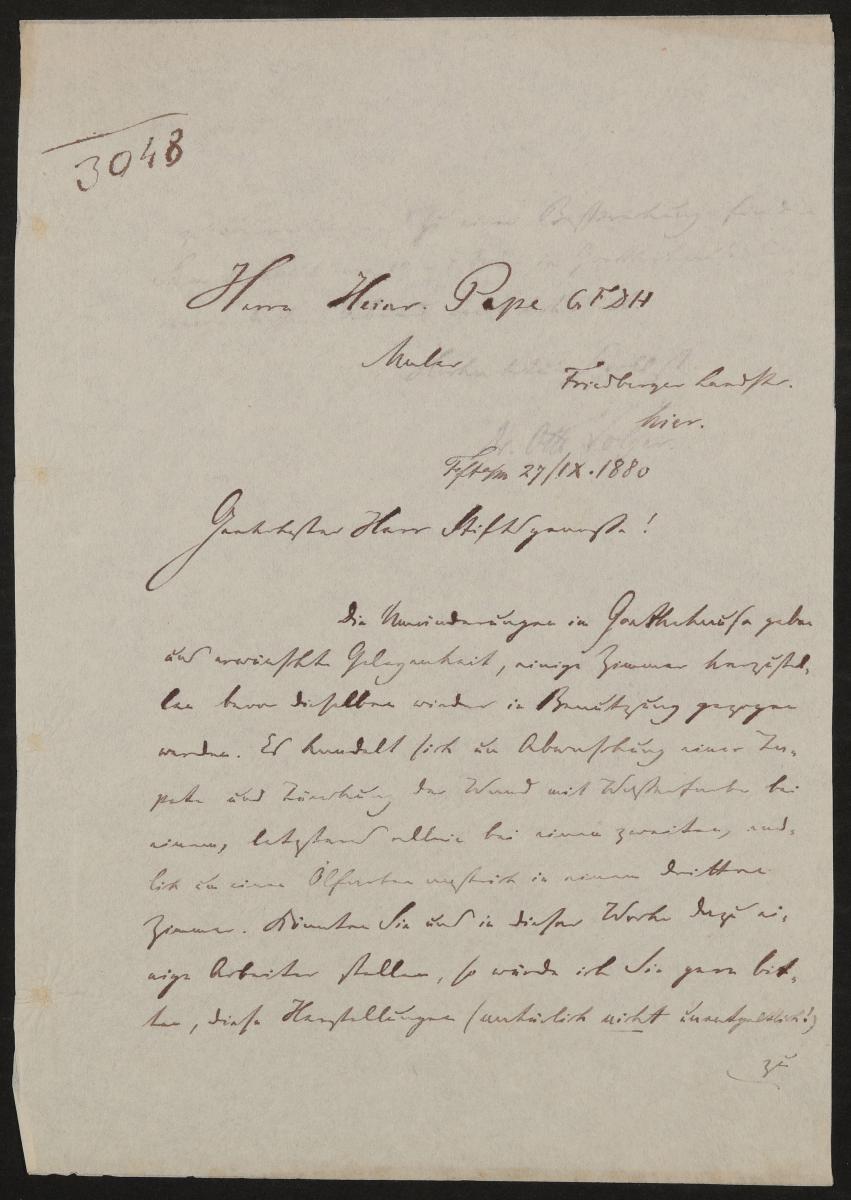 3048
Herrn Heinr. Pape GFDH
Maler
Friedberger Landstr.
hier.
Fft a/m 27/IX.1880
Geehrtester Herr Stiftsgenosse!
Die Umänderungen im Goethehause geben
uns erwünschte Gelegenheit, einige Zimmer herzustel-
len bevor dieselben wieder in Benutzung gezogen
werden. Es handelt sich um Abwaschung einer Ta-
pete und Tünchung der Wand mit Wasserfarbe bei
einem, letzteres allein bei einem zweiten, end-
lich um einen Ölfarbenanstrich in einem dritten
Zimmer. Könnten Sie uns in dieser Woche dazu ei-
nige Arbeiter stellen, so würde ich Sie gern bit-
ten, diese Herstellungen (natürlich nicht unentgeltlich!)
zu